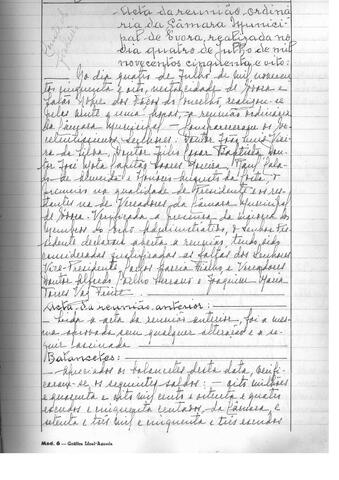 -Acta da reunião ordiná
ria da Câmara Munici
pal de Evora, realizada no
dia quatro de julho de mil
novecentos cinquenta e oito:
No dia quatro de Julho de mil novecen
tos cinquenta e oito, nesta cidade de Evora e
Salão Nobre dos Paços do Concelho, realizou-se
a reunião ordinária
da Câmara Municipal. - Compareceram os Ex
celentissimos Senhores: Doutor João Luis
da Silva, Doutor Julio Cesar Baptista, Dou
tor
de Almeida e
primeiro na qualidade de Presidente e os res
tantes na de Vereadores da Câmara Municipal
de Evora. Verificada a presença da maioria dos
membros do corpo administrativo, o Senhor Pre
sidente declarou aberta a reunião, tendo sido
consideradas justificadas as faltas dos Senhores
Vice-Presidente, e Vereadores
Doutor Alfredo e Joaquim Maria
Torres Vaz Freire.
Acta da reunião anterior:
Lida a acta da reunião anterior, foi a mes
ma aprovada sem qualquer alteração e a se
guir assinada.
Balancetes:
- Apreciados os balancetes desta data, verifi
caram-se os seguintes saldos: - oito milhões
e quarenta e oito mil cento e oitenta e quatro
escudos e cinquenta centavos, da Câmara, e
setenta e três mil e cinquenta e três escudos
Mod. 6 - Gráfica Ideal-Agueda